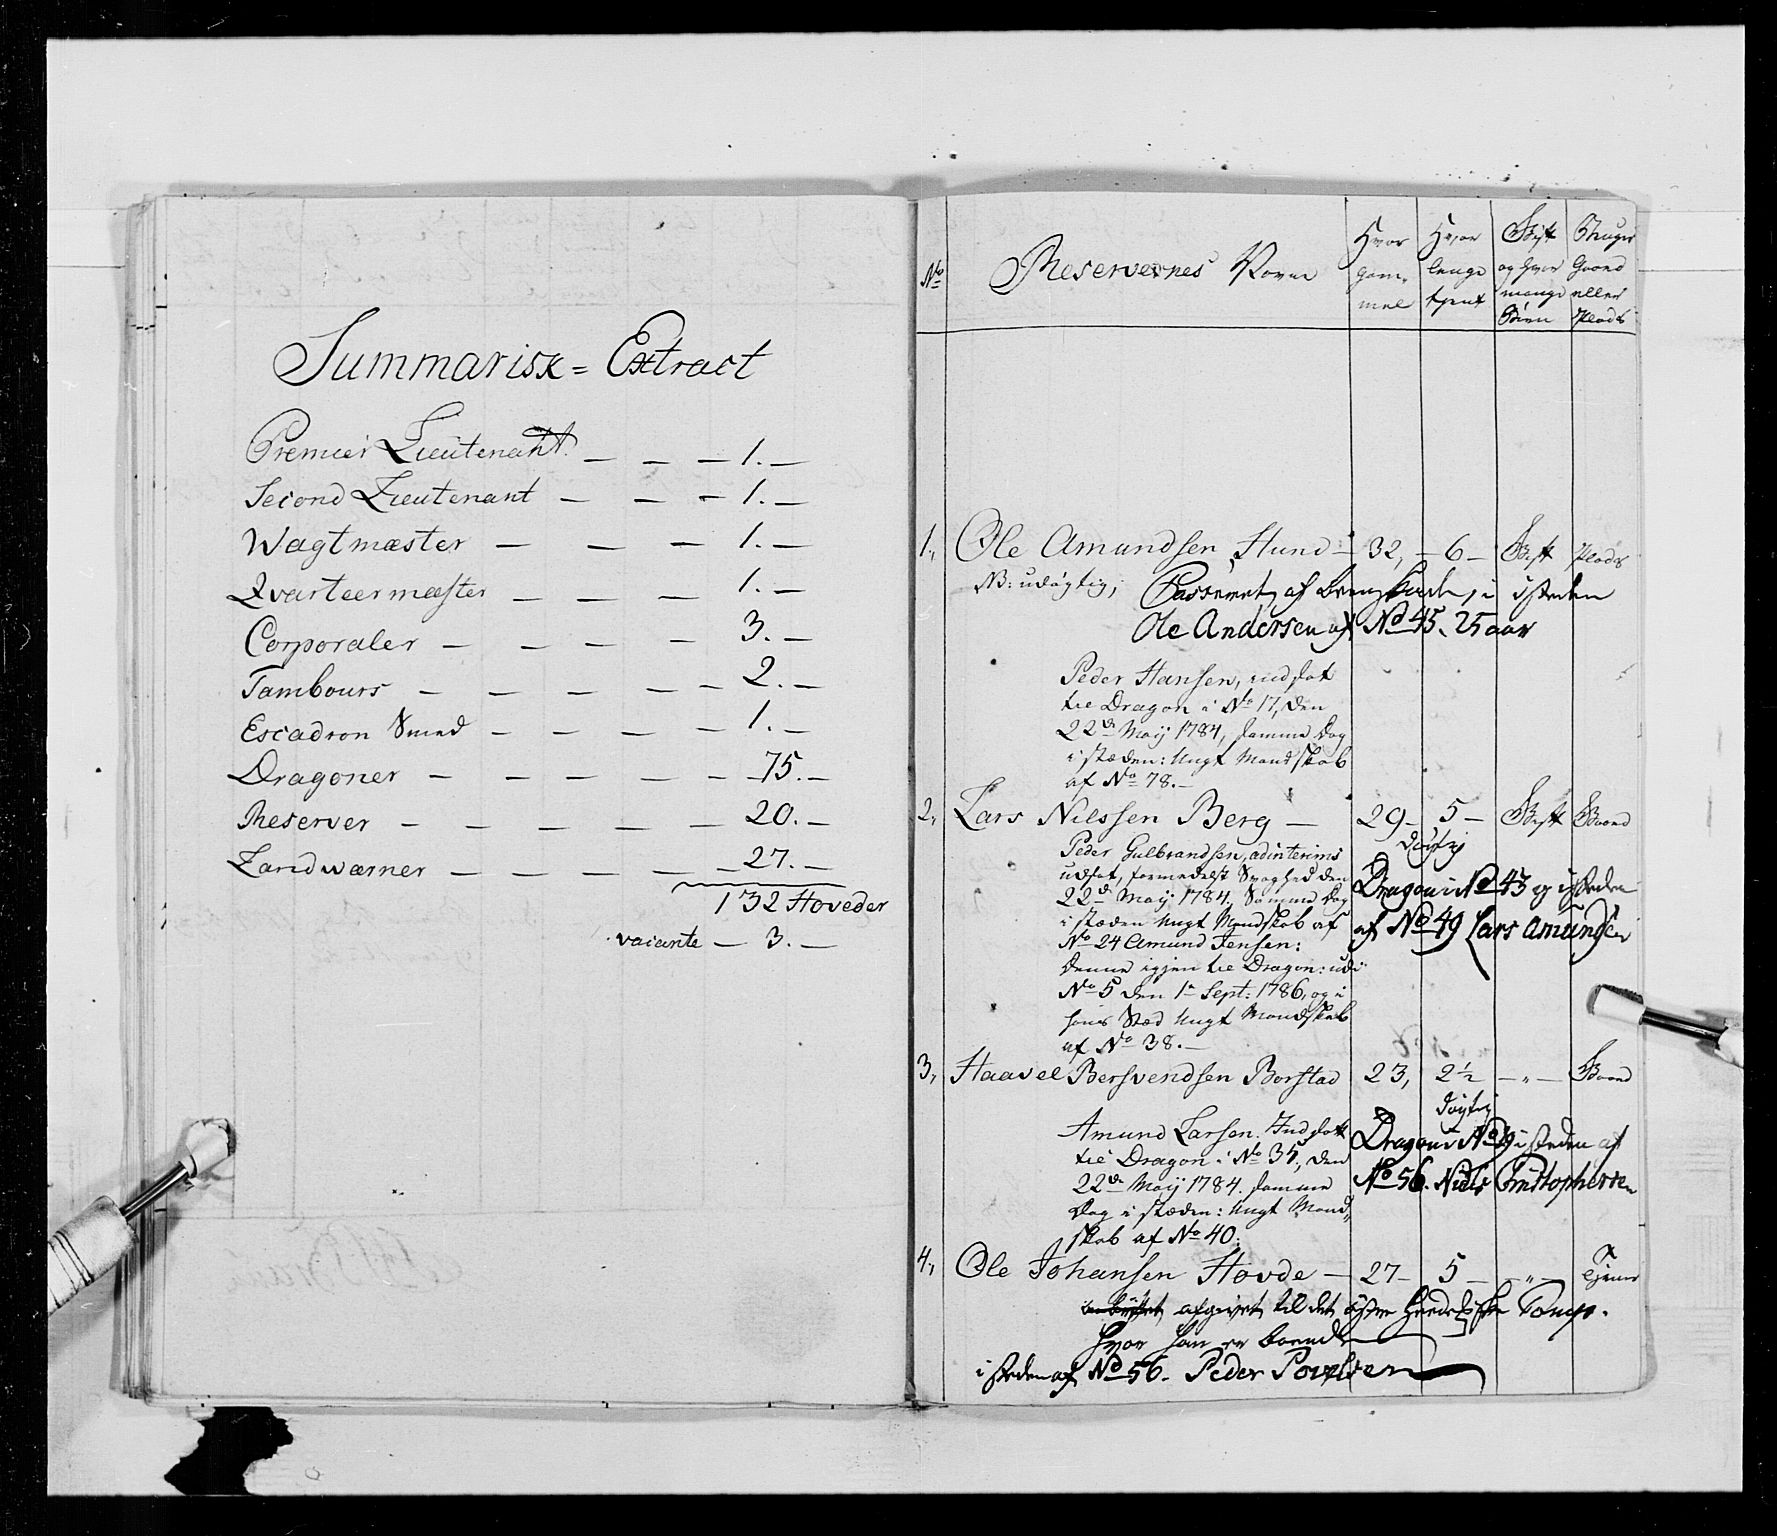 Summarisk = Extract
Premier Lieutenant. — — — 1. —
Second Lieutenant — — — 1. —
Wagtmæster — — — 1. —
Qvarteermæster — — — 1. —
Corporaler — — — — 3. —
Tambours — — — — — 2. —
Escadron Smed — — — — 1. —
Dragoner — — — — — 75. —
Reserver — — — — — 20. —
Landwærner — — — — — 27. —
132 Hoveder
vacante — 3. —
No
Reservernes Navne
Hvor gam- mel
Hvor lenge tjent
Gift og hvor mange Børn
Bruger Gaard eller Plads
1, Ole Amundsen Hund — 32, — 6 — Gift Plads
NB: udøgtig, Casseret af i steden
Ole Andersen af No 45. 25 aar
Peder Hansen, indsat
til Dragon i No 17, den
22de Maij 1784, samme Dag
i stæden: Ungt Mandskab
af No 78. —
2, Lars Nilssen Berg — 29 — 5 — Gift Gaard
Peder Gulbrandsen, adinterims
udsat, formedelst Svaghed den
22de Maij 1784, Samme Dag
i stæden Ungt Mandskab af
No 24 Amund Jensen:
denne igjen til Dragon: udi
No 5 den 1te Sept: 1786, og i
hans Stæd Ungt Mandskab
af No 38. —
dögtig
Dragon i No 43 og i steden
af No 49 Lars Amundsen
3, Haavel Bersvendsen Borstad 23, 2½ — „ — Gaard
Amund Larsen. Indsatt
til Dragon i No 35, den
22de Maij 1784. samme
Dag i stæden: Ungt Mand-
skab af No 40.
dögtig
Dragon i No 19 i steden af
No 56. Niels Christophersen
4, Ole Johansen Hovde — 27 — 5 — „ — Tjener
afgivet til det östre Comp.
hvor han er boende
i steden af No 56. Peder Povelsen